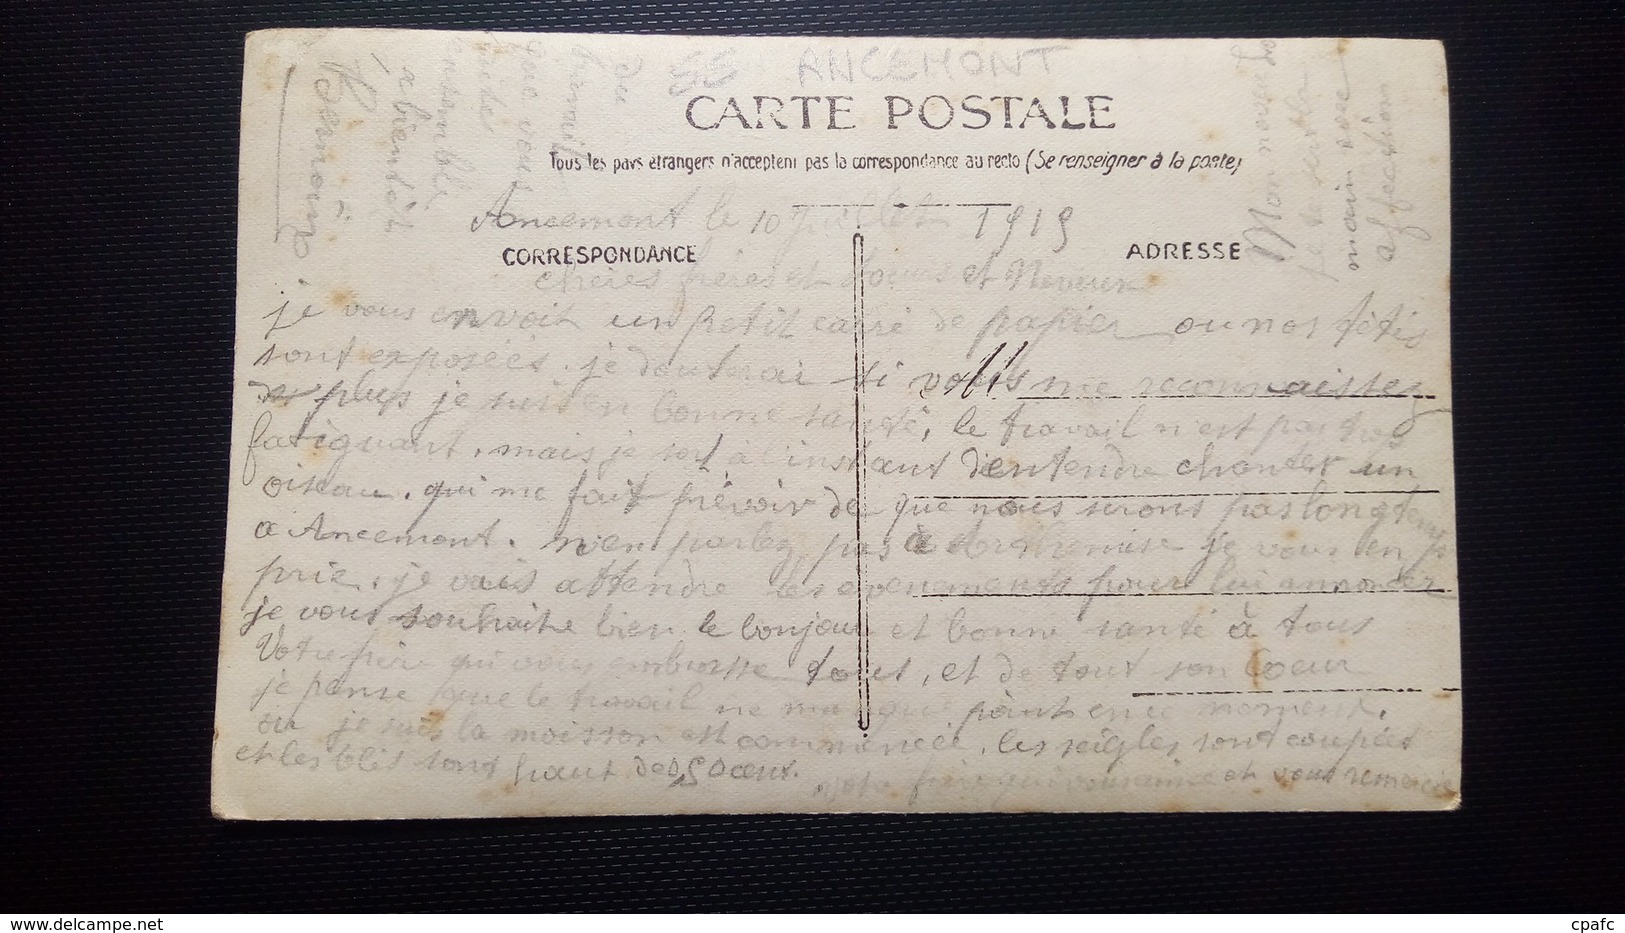 55 ANCEMONT
CARTE POSTALE
Tous les pays étrangers n'acceptent pas la correspondance au recto (Se renseigner à la poste)
Ancemont le 10 Juillet 1919
CORRESPONDANCE
ADRESSE
cheres frères et soeurs et Neveux
je vous envoit un petit carré de papier ou nos têtes
sont exposées. je douterai si vous me reconnaissez
de plus je suis en bonne santé, le travail n'est pas trop
fatiguant. mais je sort à l'instant d'entendre chanter un
oiseau. qui me fait prévoir de que nous serons pas longtemps
a Ancemont. n'en parlez pas à je vous en
prie. je vais attendre les evenements pour lui annoncer
je vous souhaite bien le bonjour et bonne santé à tous
Votre frère qui vous embrasse tous, et de tout son Coeur
je pense que le travail ne manque point en ce moment.
ou je suis la moisson est commencée, les seigles sont coupées
et les blés sont
votre frère qui vous aime et vous remercie
du
que vous
ensemble
a bientôt
Mon
je te
main avec
affection